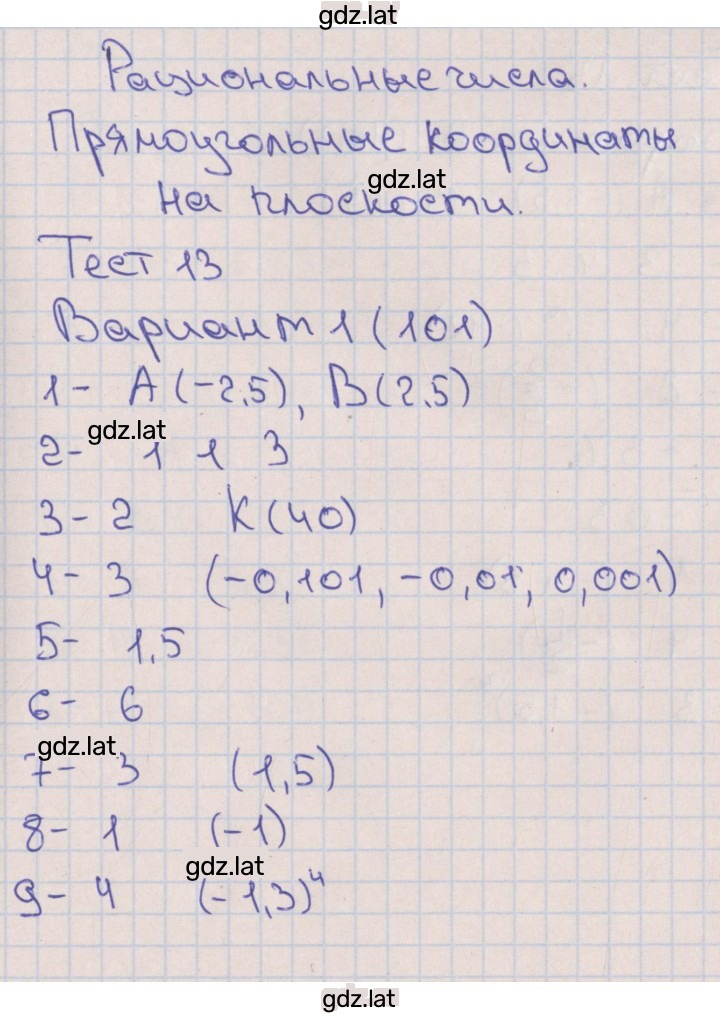 gdz.lat
Рациональные числа.
Прямоугольные координаты
gdz.lat
на плоскости.
Тест 13
Вариант 1 (101)
1- А (-2,5), В(2,5)
gdz.lat
2- 1 1 3
3- 2 К (40)
4- 3 (-0,101, -0,01, 0,001)
5- 1,5
6- 6
gdz.lat
7- 3 (1,5)
8- 1 (-1)
gdz.lat
9- 4 (-1,3)⁴
gdz.lat